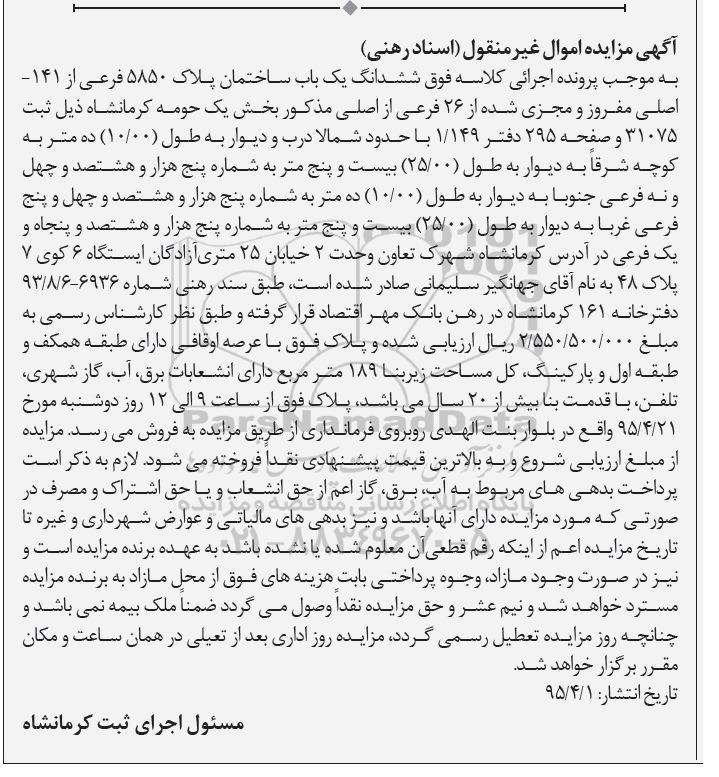 آگهی مزایده اموال غیرمنقول (اسناد رهنی)
به موجب پرونده اجرائی کلاسه فوق ششدانگ یک باب ساختمان پلاک ۵۸۵۰ فرعی از ۱۴۱-
اصلی مفروز و مجزی شده از ۲۶ فرعی از اصلی مذکور بخش یک حومه کرمانشاه ذیل ثبت
۳۱۰۷۵ و صفحه ۲۹۵ دفتر ۱/۱۴۹ با حدود شمالا درب و دیوار به طول (۱۰/۰۰) ده متر به
کوچه شرقاً به دیوار به طول (۲۵/۰۰) بیست و پنج متر به شماره پنج هزار و هشتصد و چهل
و نه فرعی جنوبا به دیوار به طول (۱۰/۰۰) ده متر به شماره پنج هزار و هشتصد و چهل و پنج
فرعی غربا به دیوار به طول (۲۵/۰۰) بیست و پنج متر به شماره پنج هزار و هشتصد و پنجاه و
یک فرعی در آدرس کرمانشاه شهرک تعاون وحدت ۲ خیابان ۲۵ متری آزادگان ایستگاه ۶ کوی ۷
پلاک ۴۸ به نام آقای جهانگیر سلیمانی صادر شده است، طبق سند رهنی شماره ۶۹۳۶-۹۳/۸/۶
دفترخانه ۱۶۱ کرمانشاه در رهن بانک مهر اقتصاد قرار گرفته و طبق نظر کارشناس رسمی به
مبلغ ۲/۵۵۰/۵۰۰/۰۰۰ ریال ارزیابی شده و پلاک فوق با عرصه اوقافی دارای طبقه همکف و
طبقه اول و پارکینگ، کل مساحت زیربنا ۱۸۹ متر مربع دارای انشعابات برق، آب، گاز شهری،
تلفن، با قدمت بنا بیش از ۲۰ سال می باشد، پلاک فوق از ساعت ۹ الی ۱۲ روز دوشنبه مورخ
۹۵/۴/۲۱ واقع در بلوار بنت الهدی روبروی فرمانداری از طریق مزایده به فروش می رسد. مزایده
از مبلغ ارزیابی شروع و به بالاترین قیمت پیشنهادی نقداً فروخته می شود. لازم به ذکر است
پرداخت بدهی های مربوط به آب، برق، گاز اعم از حق انشعاب و یا حق اشتراک و مصرف در
صورتی که مورد مزایده دارای آنها باشد و نیز بدهی های مالیاتی و عوارض شهرداری و غیره تا
تاریخ مزایده اعم از اینکه رقم قطعی آن معلوم شده یا نشده باشد به عهده برنده مزایده است و
نیز در صورت وجود مازاد، وجوه پرداختی بابت هزینه های فوق از محل مازاد به برنده مزایده
مسترد خواهد شد و نیم عشر و حق مزایده نقداً وصول می گردد ضمناً ملک بیمه نمی باشد و
چنانچه روز مزایده تعطیل رسمی گردد، مزایده روز اداری بعد از تعیلی در همان ساعت و مکان
مقرر برگزار خواهد شد.
تاریخ انتشار: ۹۵/۴/۱
مسئول اجرای ثبت کرمانشاه
ParsNamadData
پایگاه اطلاع رسانی مناقصه و مزایده
۰۲۱-۸۸۳۴۹۶۷۰-۵